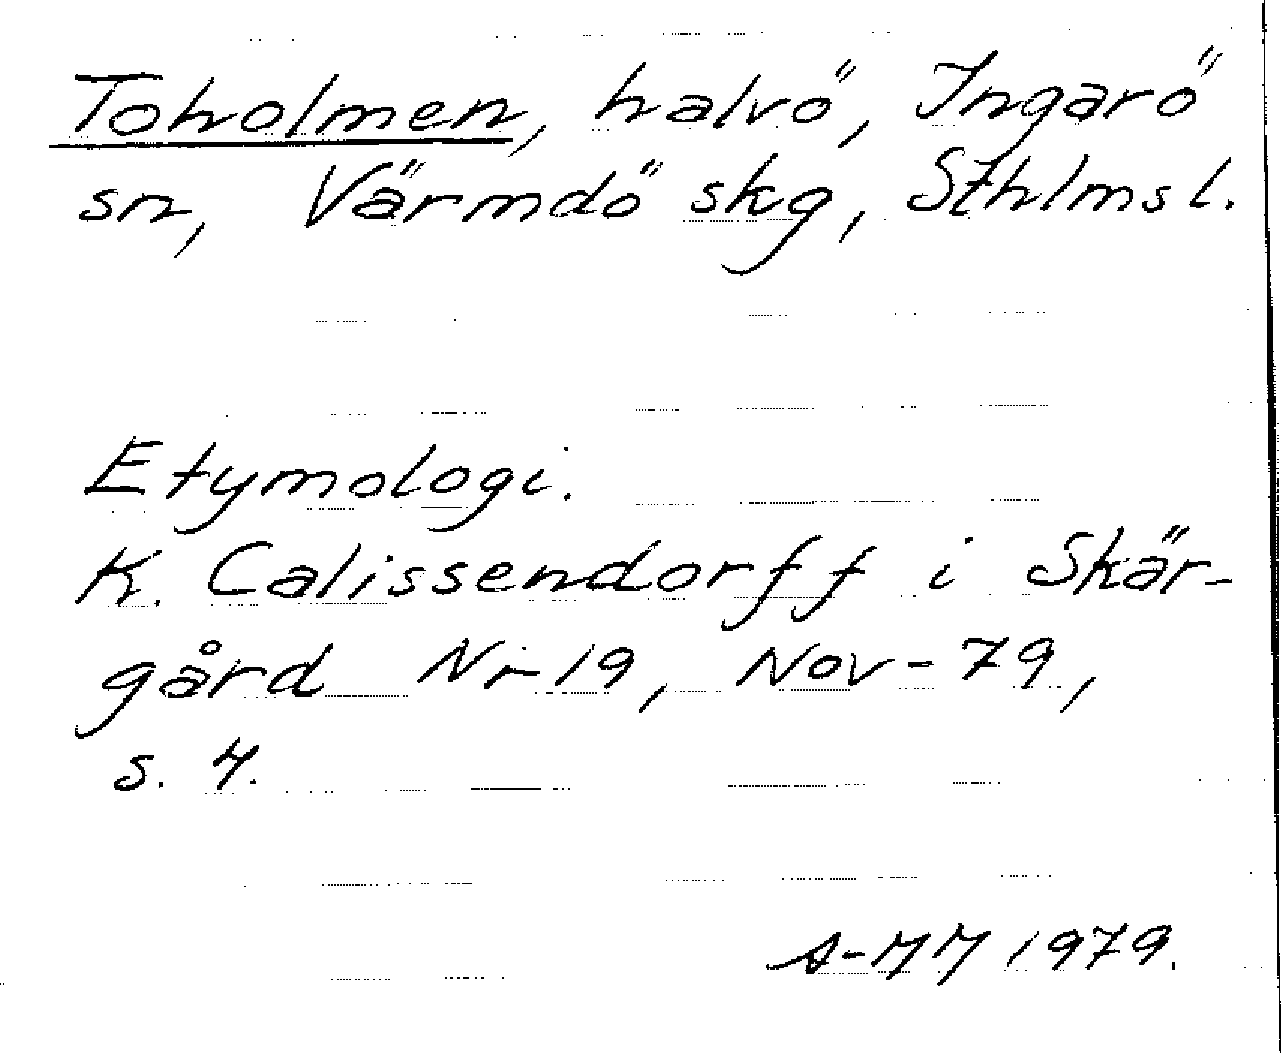 Toholmen, halvö, Ingarö
sn, Värmdö skg, Sthlms l.
Etymologi.
K. Calissendorff i Skär-
gård Nr 19, Nov-79,
s. 4.
A-MM 1979.